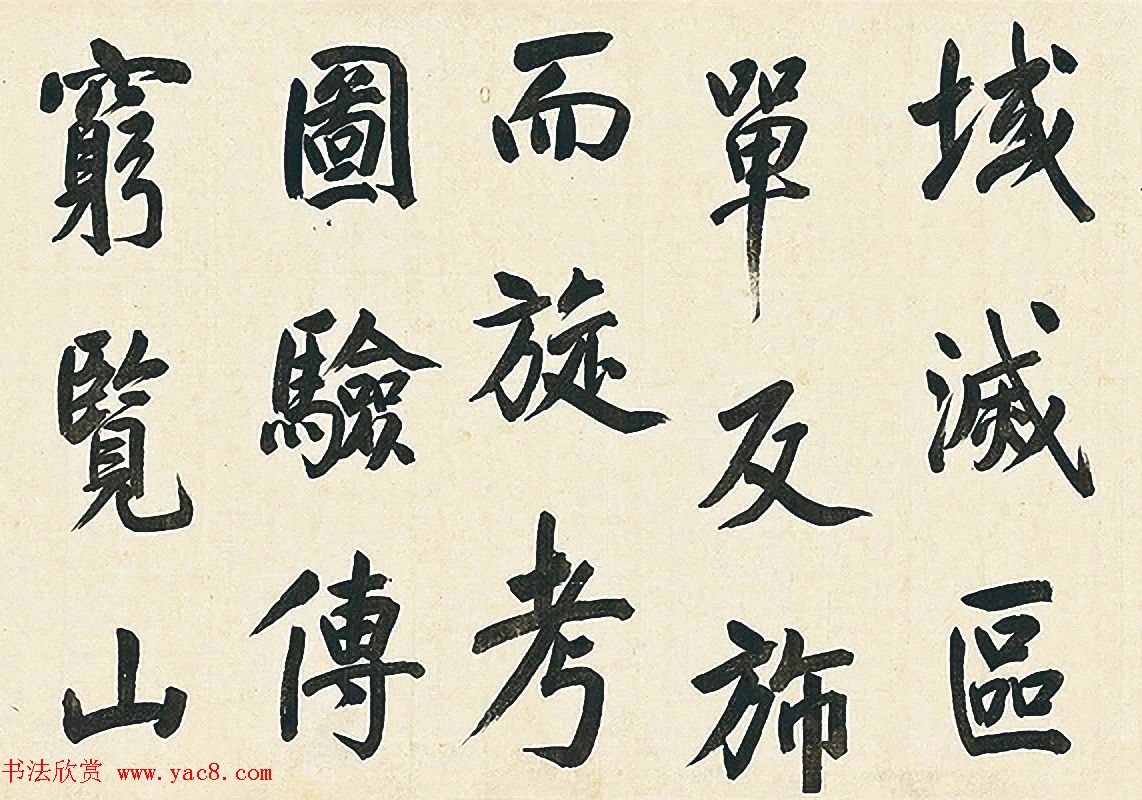 域滅區
單反旆
而旋考
圖驗傳
窮覽山
书法欣赏 www.yac8.com